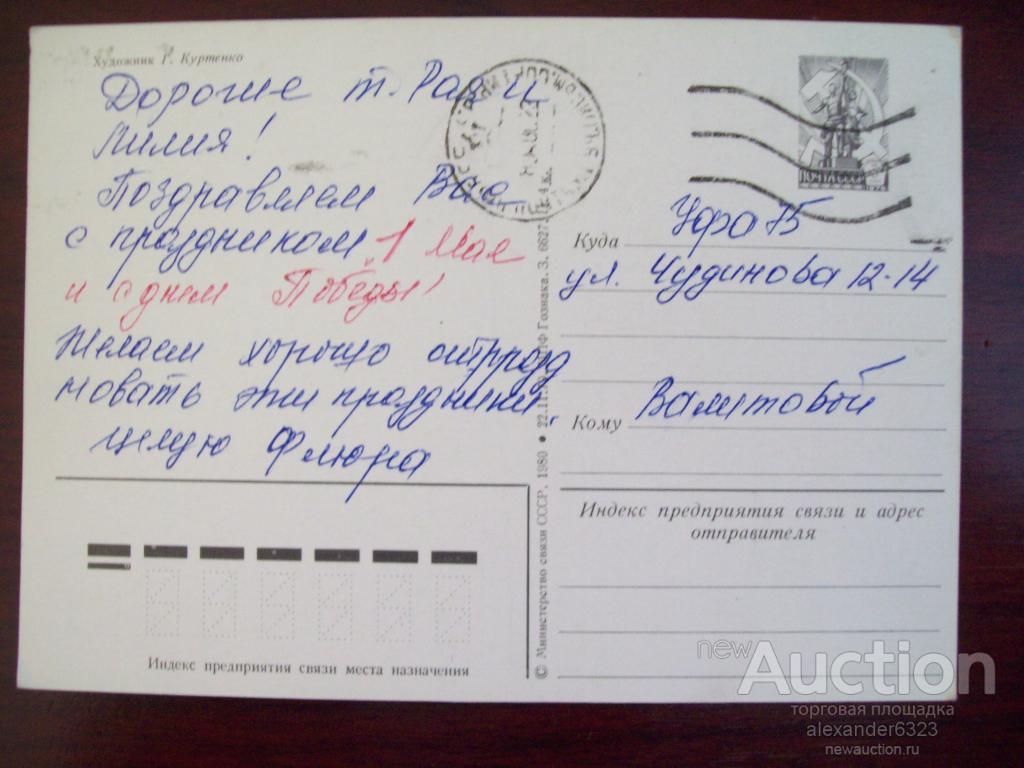 Художник Г. Куртенко
Дорогие т. Рая и
Лилия!
Поздравляем Вас
с праздником „1 Мая
и с днем Победы!
Желаем хорошо отпразд
новать эти праздники.
целую Флюра
ПОЧТА СССР
Куда Уфа 75
ул. Чудинова 12-14
Кому Валитовой
Индекс предприятия связи и адрес
отправителя
Индекс предприятия связи места назначения
© Министерство связи СССР, 1980 • 22.11.
Гознака. З. 6627.
4 к.
newAuction
торговая площадка
alexander6323
newauction.ru